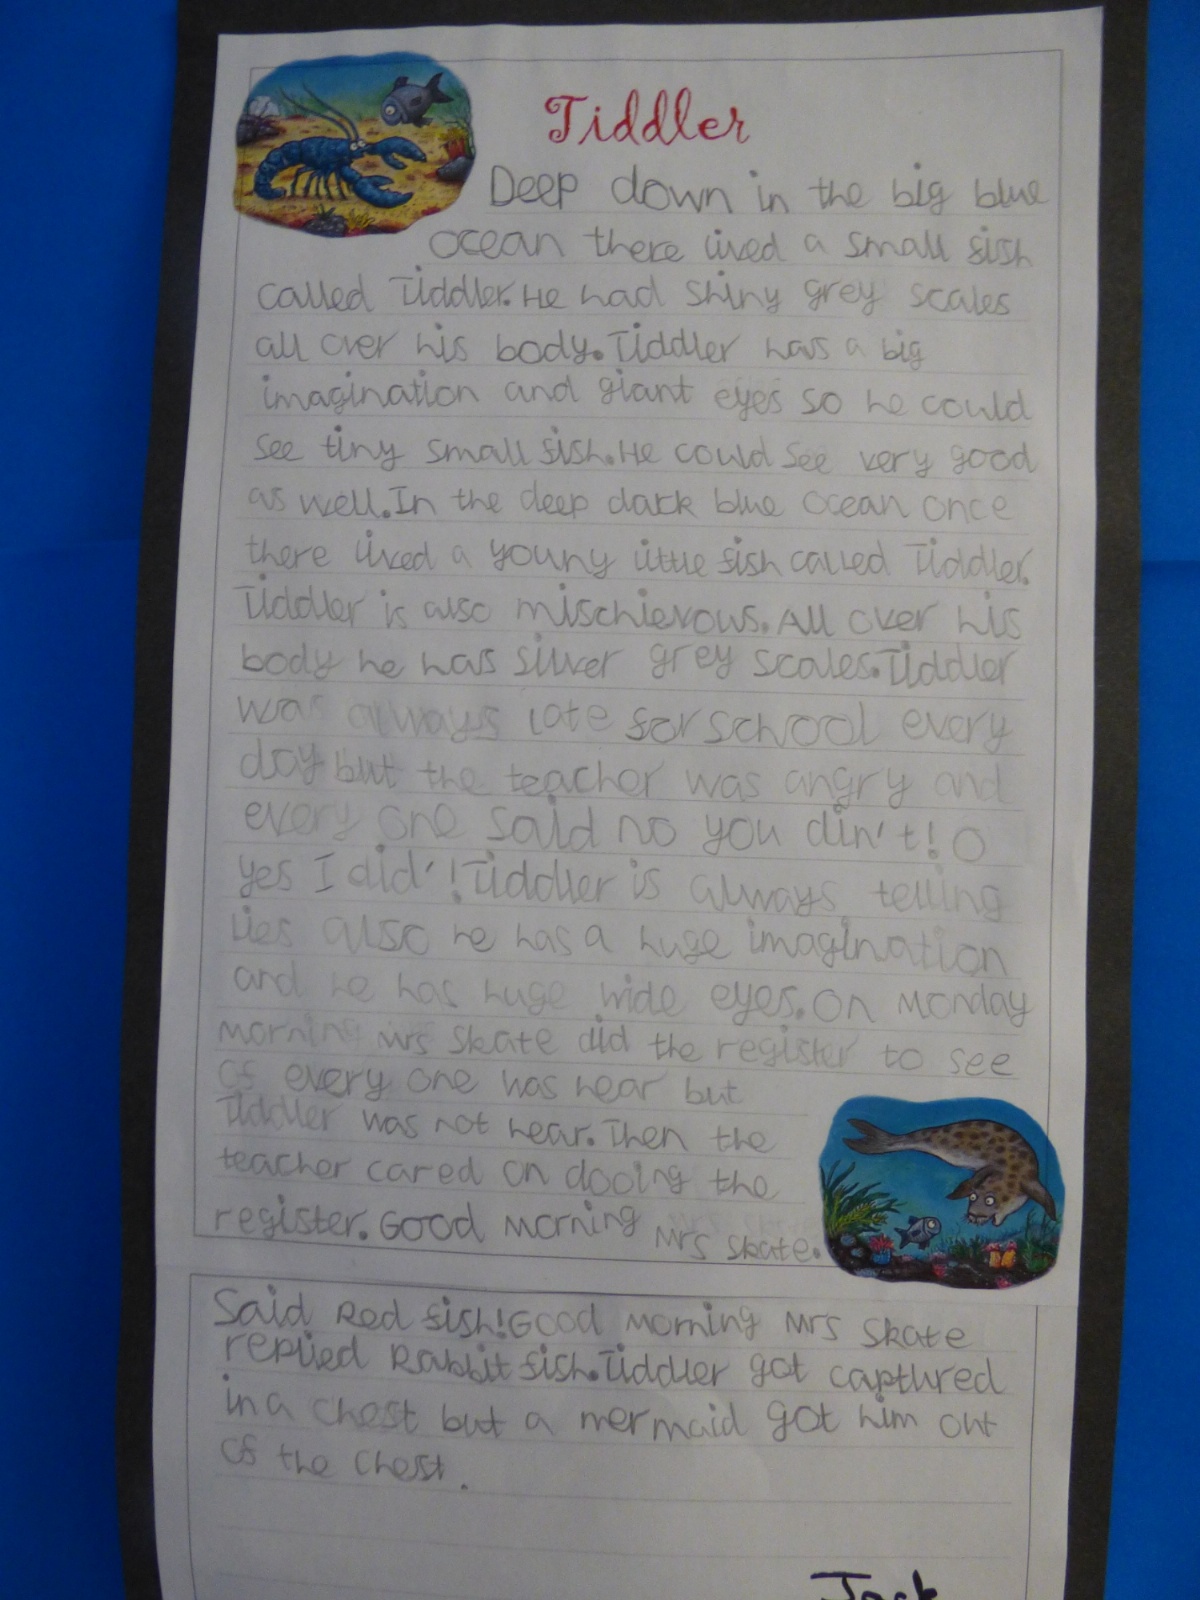 Tiddler
Deep down in the big blue
ocean there lived a small fish
called Tiddler. He had shiny grey scales
all over his body. Tiddler has a big
imagination and giant eyes so he could
see tiny small fish. He could see very good
as well. In the deep dark blue ocean once
there lived a young little fish called Tiddler.
Tiddler is also mischievous. All over his
body he has silver grey scales. Tiddler
was always late for school every
day but the teacher was angry and
every one said no you din't! O
yes I did'! Tiddler is always telling
lies also he has a huge imagination
and he has huge wide eyes. On Monday
morning Mrs Skate did the register to see
of every one was hear but
Tiddler was not hear. Then the
teacher cared on dooing the
register. Good morning Mrs Skate.
Said Red fish! Good morning Mrs Skate
replied Rabbit fish. Tiddler got captured
in a chest but a mermaid got him out
of the chest.
Jack